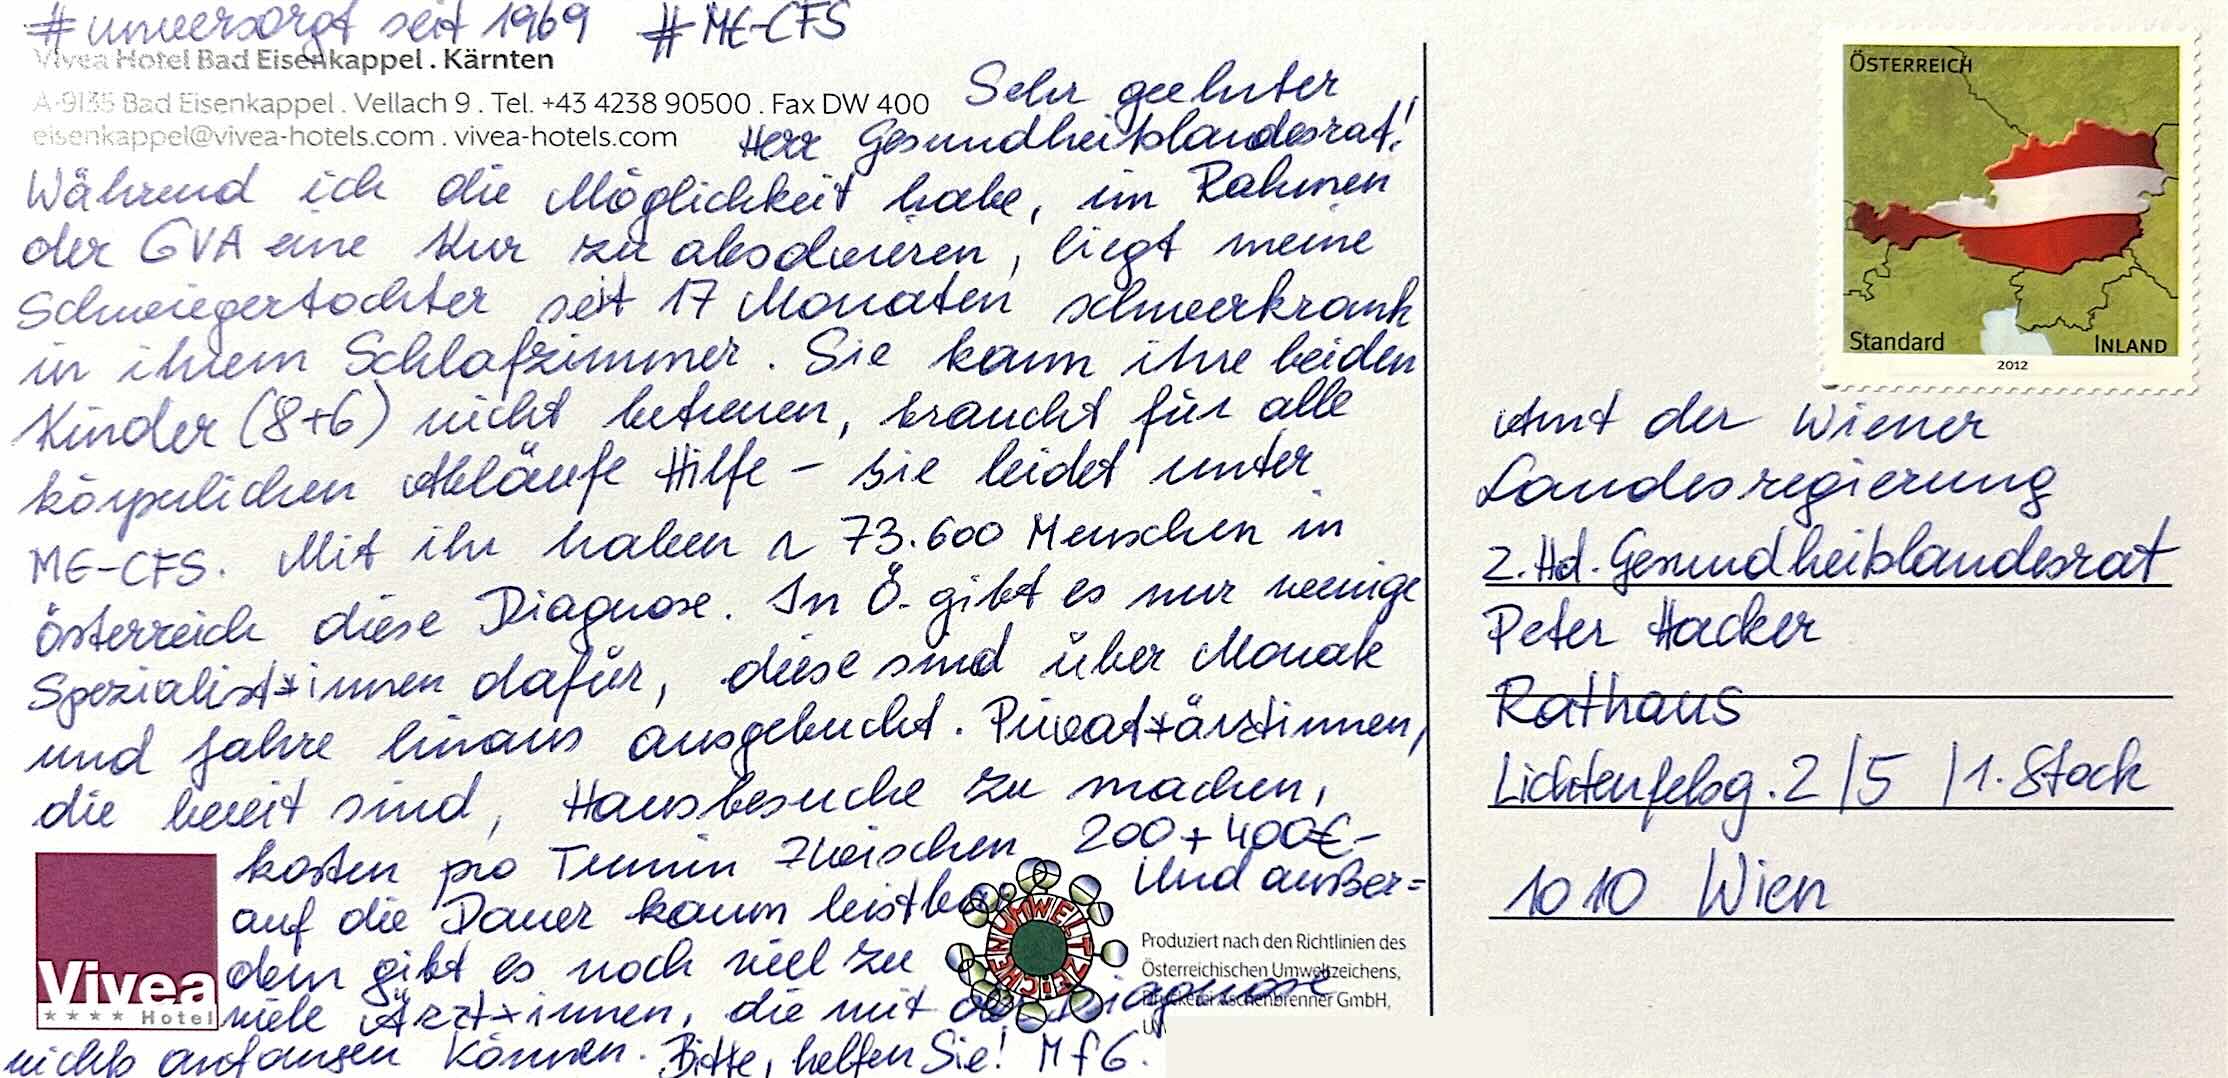 #unversorgt seit 1969 #ME-CFS
Vivea Hotel Bad Eisenkappel . Kärnten
A-9135 Bad Eisenkappel . Vellach 9 . Tel. +43 4238 90500 . Fax DW 400
eisenkappel@vivea-hotels.com . vivea-hotels.com
Sehr geehrter
Herr Gesundheitslandesrat!
Während ich die Möglichkeit habe, im Rahmen
der GVA eine Kur zu absolvieren, liegt meine
Schwiegertochter seit 17 Monaten schwerkrank
in ihrem Schlafzimmer. Sie kann ihre beiden
Kinder (8+6) nicht betreuen, braucht für alle
körperlichen Abläufe Hilfe – sie leidet unter
ME-CFS. Mit ihr haben ~ 73.600 Menschen in
Österreich diese Diagnose. In Ö. gibt es nur wenige
Spezialist*innen dafür, diese sind über Monate
und Jahre hinaus ausgebucht. Privat*ärztinnen,
die bereit sind, Hausbesuche zu machen,
kosten pro Termin zwischen 200 + 400€ –
auf die Dauer kaum leistbar. Und außer=
dem gibt es noch viel zu
viele Ärzt*innen, die mit der Diagnose
nichts anfangen können. Bitte, helfen Sie! MfG.
Vivea
Hotel
UMWELTZEICHEN
Produziert nach den Richtlinien des
Österreichischen Umweltzeichens,
Druckerei Aschenbrenner GmbH,
ÖSTERREICH
Standard
INLAND
2012
Amt der Wiener
Landesregierung
z.Hd. Gesundheitslandesrat
Peter Hacker
Rathaus
Lichtenfelsg. 2 /5 /1. Stock
1010 Wien